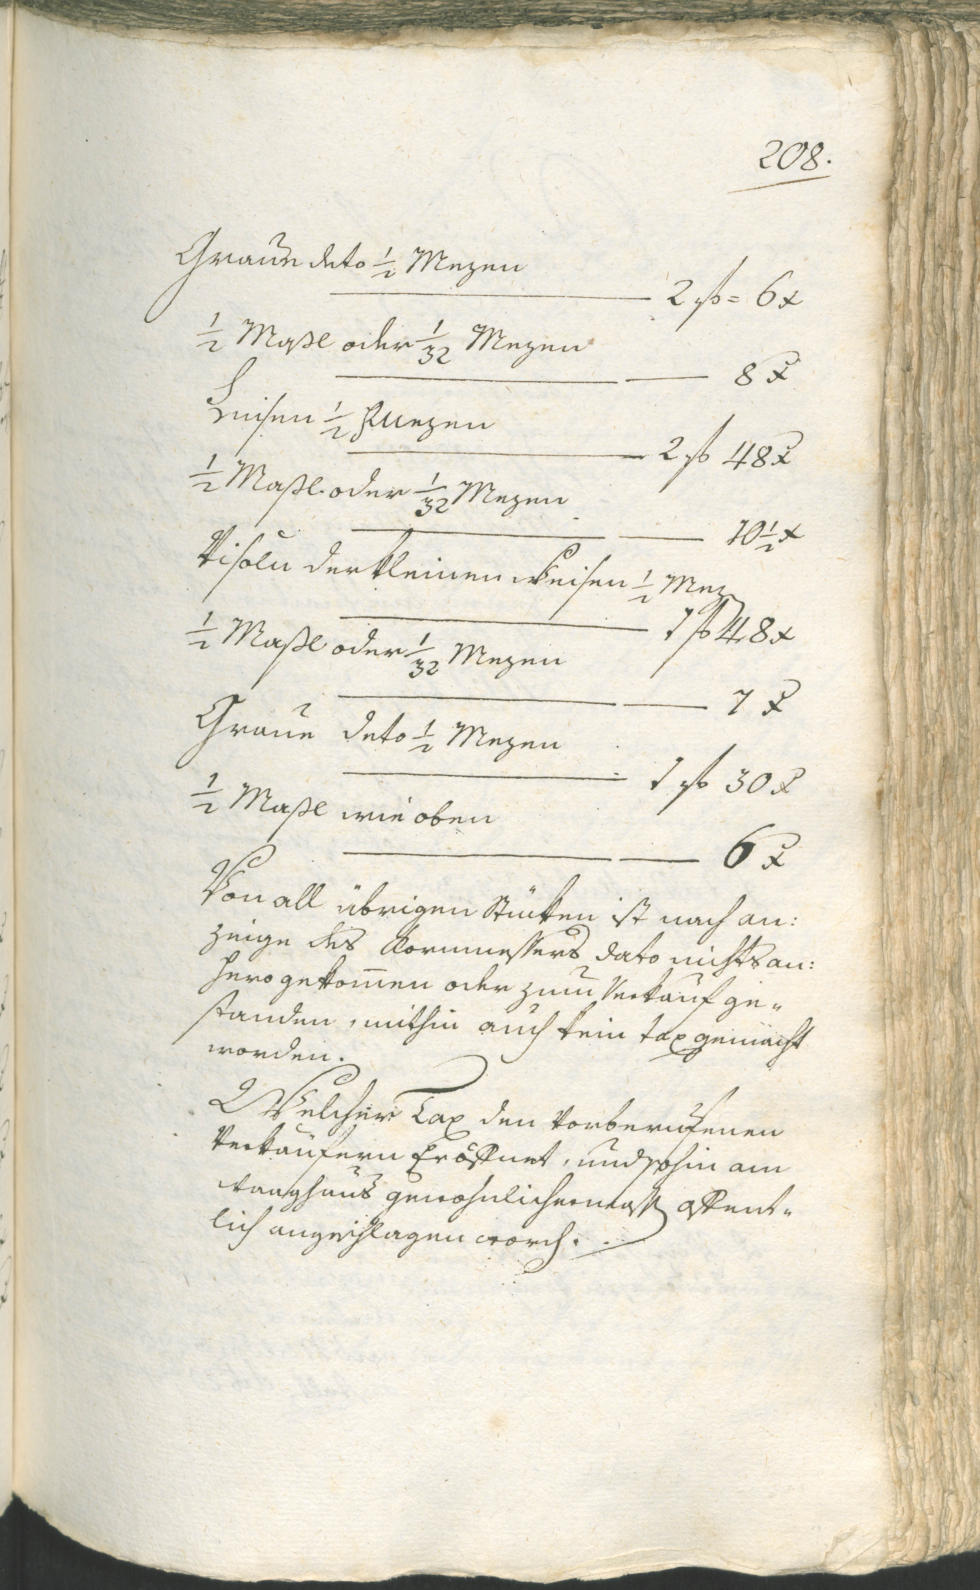 208.
Graue deto 1/2 Mezen
2 f = 6 x
1/2 Maßl oder 1/32 Mezen
8 x
Linsen 1/2 Mezen
2 f 48 x
1/2 Maßl oder 1/32 Mezen
10 1/2 x
Fisoln der kleinen weisen 1/2 Mez
1 f 48 x
1/2 Maßl oder 1/32 Mezen
7 x
Graue deto 1/2 Mezen
1 f 30 x
1/2 Maßl wie oben
6 x
Von all übrigen Stücken ist nach an:
zeige des Kornmessers dato nichts an:
hero gekommen oder zum Verkauf ge-
standen, mithin auch kein tax gemacht
worden.
Welcher Tax den vorberufenen
Verkäufern Eröffnet, und sohin am
waaghaus gewohnlichermaß offent-
lich angeschlagen word.